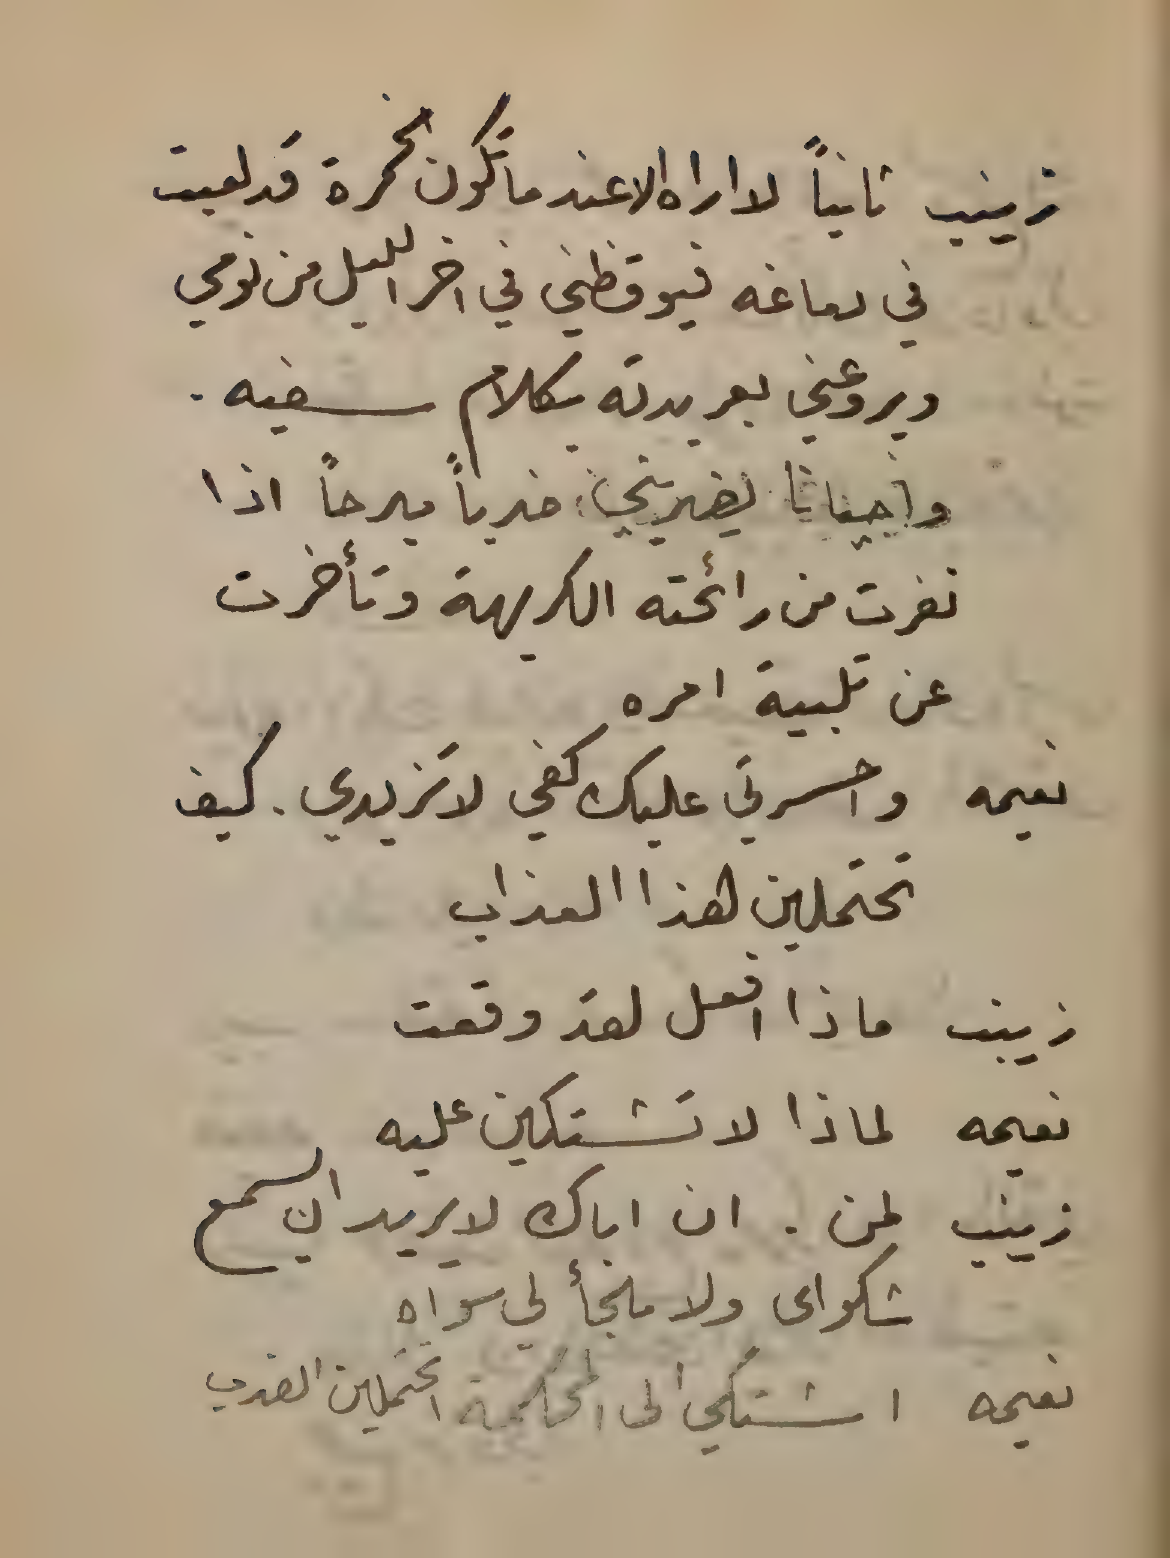 زينب ثانياً لا اراه الا عند ما تكون الخمرة قد لعبت
في دماغه فيوقظني في اخر الليل من نومي
ويروعني بعربدته بكلام سفيه .
واحيانا يضربني ضرباً مبرحاً اذا
نفرت من رائحته الكريهة وتأخرت
عن تلبية امره
نعيمه واحسرتي عليك كفي لا تزيدي . كيف
تحتملين هذا العذاب
زينب ماذا افعل لقد وقعت
نعيمه لماذا لا تشتكين عليه
زينب لمن . ان اباك لا يريد ان يسمع
شكواى ولا ملجأ لي سواه
نعيمه اشتكي الى المحكمة اتحتملين الضرب